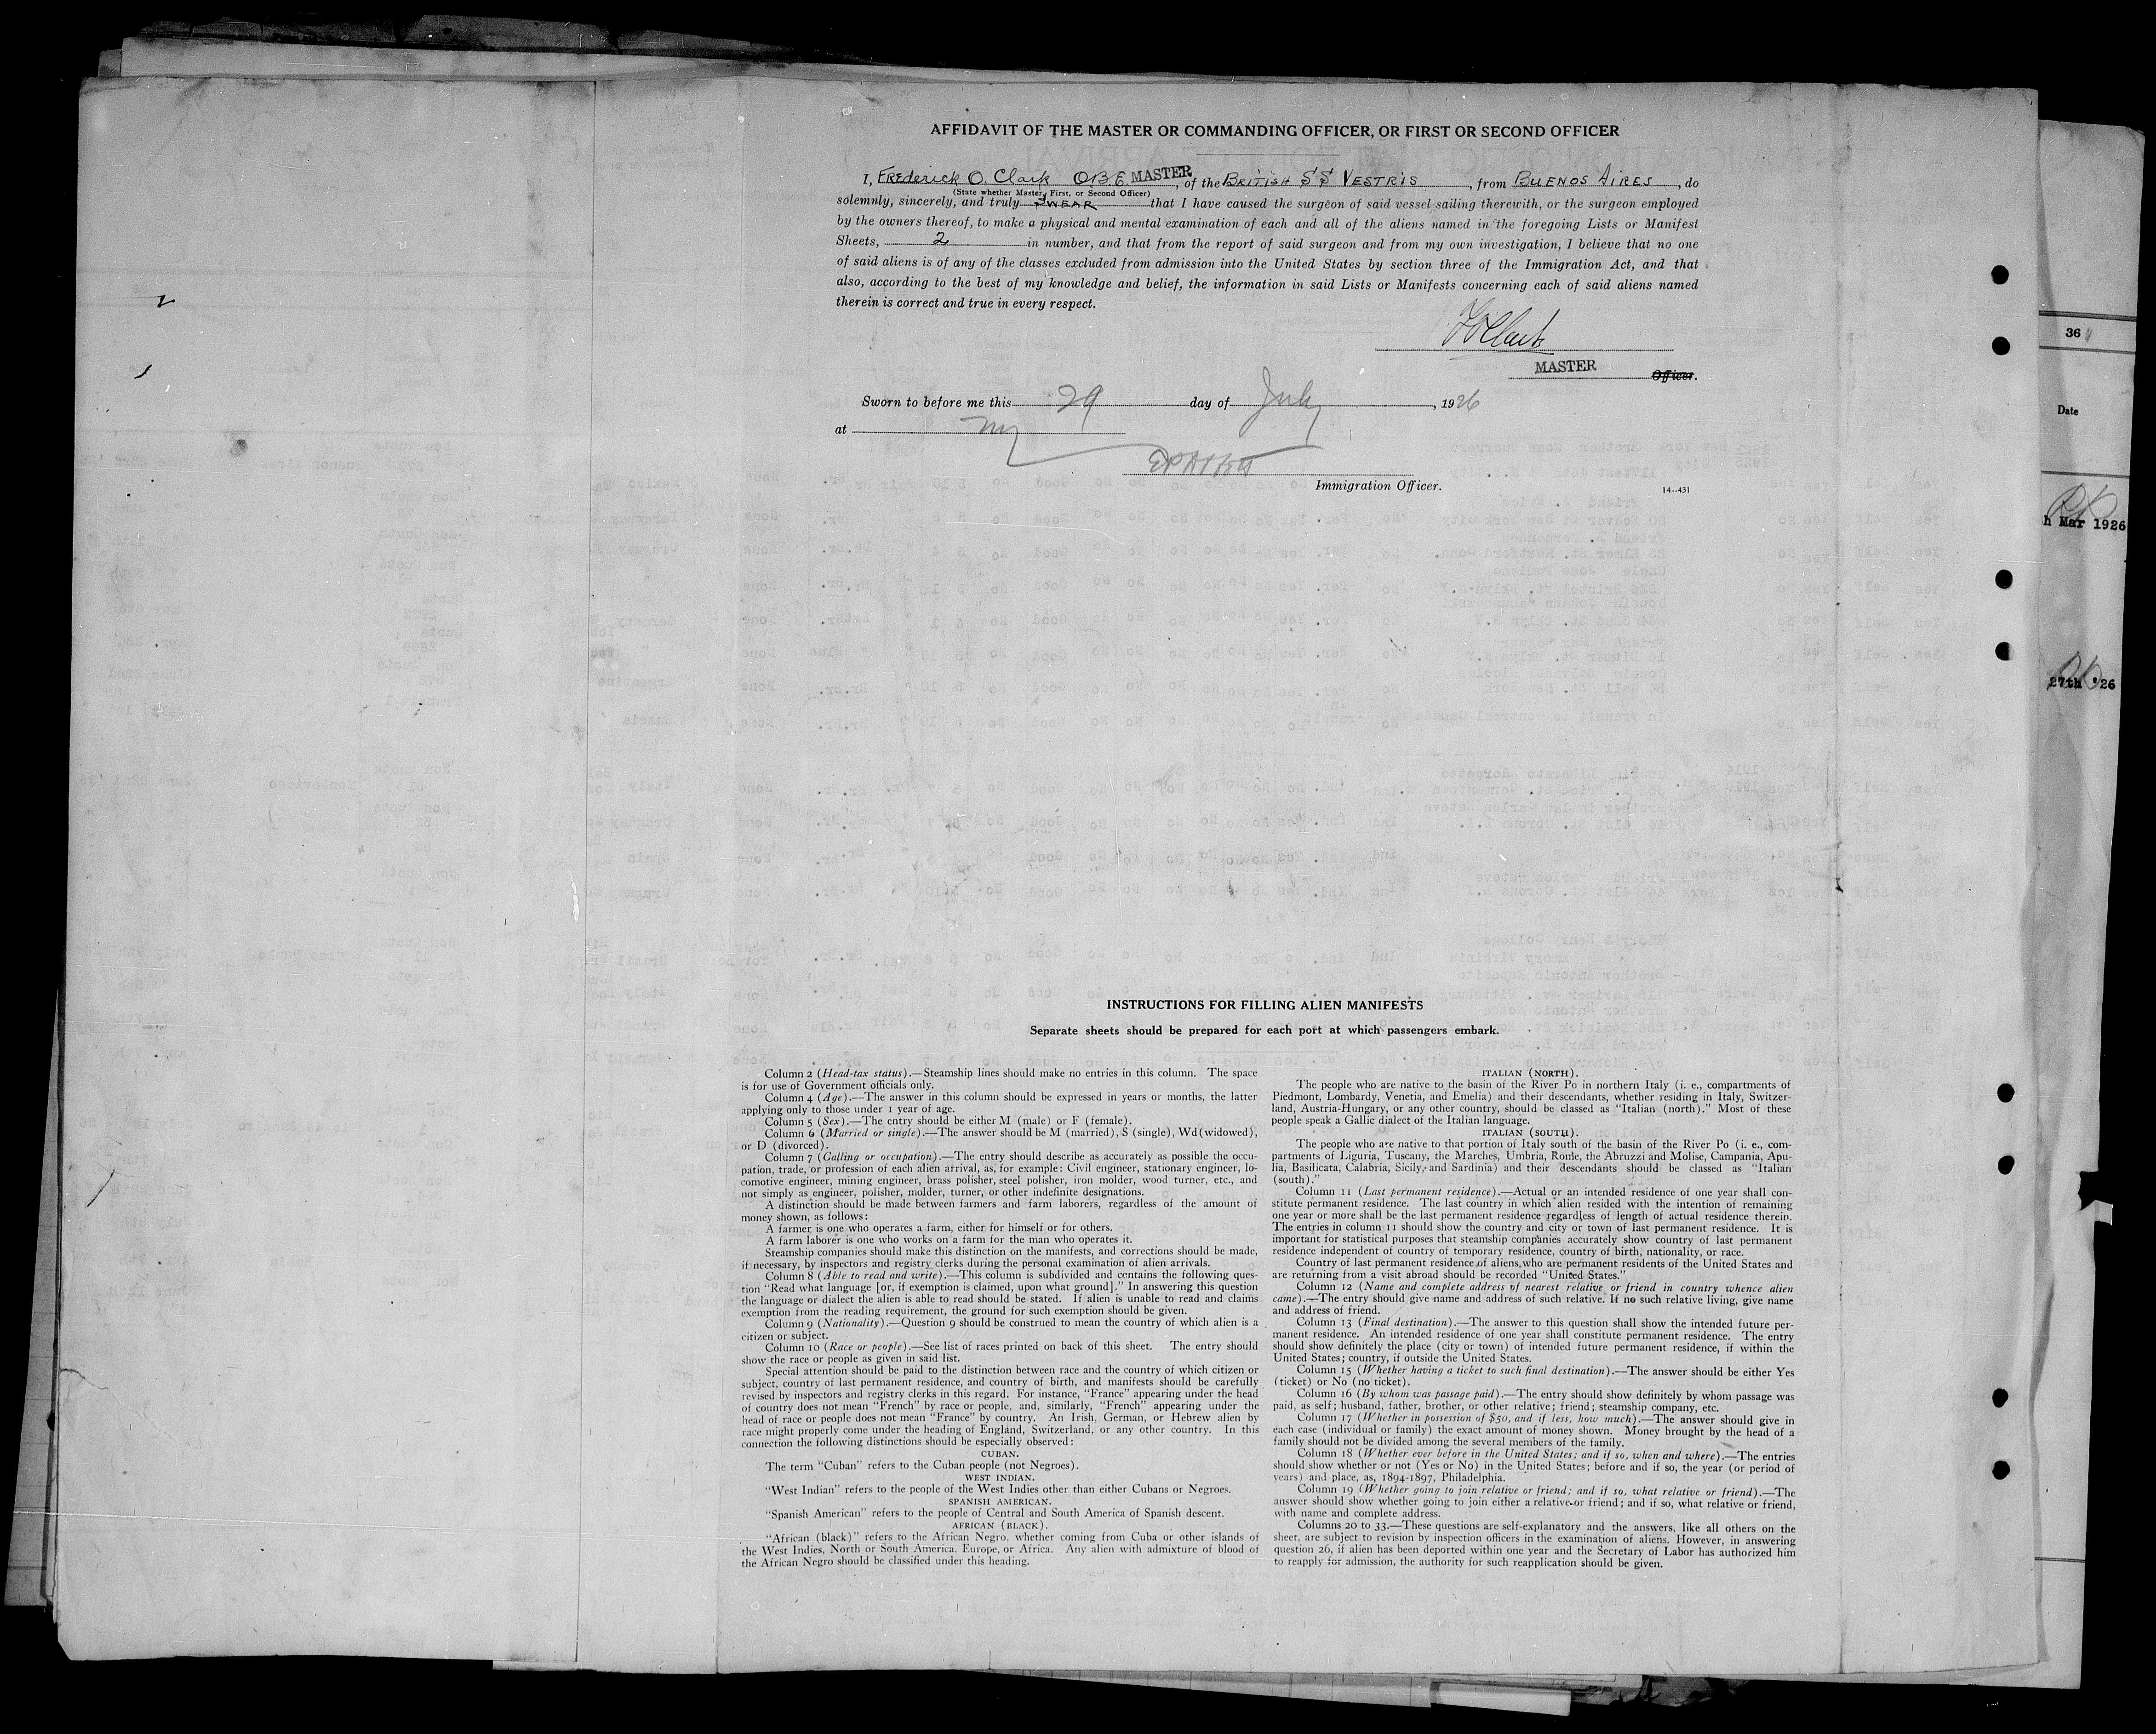 AFFIDAVIT OF THE MASTER OR COMMANDING OFFICER, OR FIRST OR SECOND OFFICER
I, FREderick O. Clark O.B.E. MASTER, of the BRITISH SS VESTRIS, from BUENOS AIRES, do
(State whether Master, First, or Second Officer)
solemnly, sincerely, and truly SWEAR that I have caused the surgeon of said vessel sailing therewith, or the surgeon employed
by the owners thereof, to make a physical and mental examination of each and all of the aliens named in the foregoing Lists or Manifest
Sheets, 2 in number, and that from the report of said surgeon and from my own investigation, I believe that no one
of said aliens is of any of the classes excluded from admission into the United States by section three of the Immigration Act, and that
also, according to the best of my knowledge and belief, the information in said Lists or Manifests concerning each of said aliens named
therein is correct and true in every respect.
FOClark
MASTER Officer.
Sworn to before me this 29 day of July, 1926
at NY
Immigration Officer.
14—431
36
Date
h Mar 1926
27th '26
INSTRUCTIONS FOR FILLING ALIEN MANIFESTS
Separate sheets should be prepared for each port at which passengers embark.
Column 2 (Head-tax status).—Steamship lines should make no entries in this column. The space
is for use of Government officials only.
Column 4 (Age).—The answer in this column should be expressed in years or months, the latter
applying only to those under 1 year of age.
Column 5 (Sex).—The entry should be either M (male) or F (female).
Column 6 (Married or single).—The answer should be M (married), S (single), Wd (widowed),
or D (divorced).
Column 7 (Calling or occupation).—The entry should describe as accurately as possible the occu-
pation, trade, or profession of each alien arrival, as, for example: Civil engineer, stationary engineer, lo-
comotive engineer, mining engineer, brass polisher, steel polisher, iron molder, wood turner, etc., and
not simply as engineer, polisher, molder, turner, or other indefinite designations.
A distinction should be made between farmers and farm laborers, regardless of the amount of
money shown, as follows:
A farmer is one who operates a farm, either for himself or for others.
A farm laborer is one who works on a farm for the man who operates it.
Steamship companies should make this distinction on the manifests, and corrections should be made,
if necessary, by inspectors and registry clerks during the personal examination of alien arrivals.
Column 8 (Able to read and write).—This column is subdivided and contains the following ques-
tion "Read what language [or, if exemption is claimed, upon what ground]." In answering this question
the language or dialect the alien is able to read should be stated. If alien is unable to read and claims
exemption from the reading requirement, the ground for such exemption should be given.
Column 9 (Nationality).—Question 9 should be construed to mean the country of which alien is a
citizen or subject.
Column 10 (Race or people).—See list of races printed on back of this sheet. The entry should
show the race or people as given in said list.
Special attention should be paid to the distinction between race and the country of which citizen or
subject, country of last permanent residence, and country of birth, and manifests should be carefully
revised by inspectors and registry clerks in this regard. For instance, "France" appearing under the head
of country does not mean "French" by race or people, and, similarly, "French" appearing under the
head of race or people does not mean "France" by country. An Irish, German, or Hebrew alien by
race might properly come under the heading of England, Switzerland, or any other country. In this
connection the following distinctions should be especially observed:
CUBAN.
The term "Cuban" refers to the Cuban people (not Negroes).
WEST INDIAN.
"West Indian" refers to the people of the West Indies other than either Cubans or Negroes.
SPANISH AMERICAN.
"Spanish American" refers to the people of Central and South America of Spanish descent.
AFRICAN (BLACK).
"African (black)" refers to the African Negro, whether coming from Cuba or other islands of
the West Indies, North or South America, Europe, or Africa. Any alien with admixture of blood of
the African Negro should be classified under this heading.
ITALIAN (NORTH).
The people who are native to the basin of the River Po in northern Italy (i. e., compartments of
Piedmont, Lombardy, Venetia, and Emelia) and their descendants, whether residing in Italy, Switzer-
land, Austria-Hungary, or any other country, should be classed as "Italian (north)." Most of these
people speak a Gallic dialect of the Italian language.
ITALIAN (SOUTH).
The people who are native to that portion of Italy south of the basin of the River Po (i. e., com-
partments of Liguria, Tuscany, the Marches, Umbria, Rome, the Abruzzi and Molise, Campania, Apu-
lia, Basilicata, Calabria, Sicily, and Sardinia) and their descendants should be classed as "Italian
(south)."
Column 11 (Last permanent residence).—Actual or an intended residence of one year shall con-
stitute permanent residence. The last country in which alien resided with the intention of remaining
one year or more shall be the last permanent residence regardless of length of actual residence therein.
The entries in column 11 should show the country and city or town of last permanent residence. It is
important for statistical purposes that steamship companies accurately show country of last permanent
residence independent of country of temporary residence, country of birth, nationality, or race.
Country of last permanent residence of aliens who are permanent residents of the United States and
are returning from a visit abroad should be recorded "United States."
Column 12 (Name and complete address of nearest relative or friend in country whence alien
came).—The entry should give name and address of such relative. If no such relative living, give name
and address of friend.
Column 13 (Final destination).—The answer to this question shall show the intended future per-
manent residence. An intended residence of one year shall constitute permanent residence. The entry
should show definitely the place (city or town) of intended future permanent residence, if within the
United States; country, if outside the United States.
Column 15 (Whether having a ticket to such final destination).—The answer should be either Yes
(ticket) or No (no ticket).
Column 16 (By whom was passage paid).—The entry should show definitely by whom passage was
paid, as self; husband, father, brother, or other relative; friend; steamship company, etc.
Column 17 (Whether in possession of $50, and if less, how much).—The answer should give in
each case (individual or family) the exact amount of money shown. Money brought by the head of a
family should not be divided among the several members of the family.
Column 18 (Whether ever before in the United States; and if so, when and where).—The entries
should show whether or not (Yes or No) in the United States; before and if so, the year (or period of
years) and place, as, 1894-1897, Philadelphia.
Column 19 (Whether going to join relative or friend; and if so, what relative or friend).—The
answer should show whether going to join either a relative or friend; and if so, what relative or friend,
with name and complete address.
Columns 20 to 33.—These questions are self-explanatory and the answers, like all others on the
sheet, are subject to revision by inspection officers in the examination of aliens. However, in answering
question 26, if alien has been deported within one year and the Secretary of Labor has authorized him
to reapply for admission, the authority for such reapplication should be given.